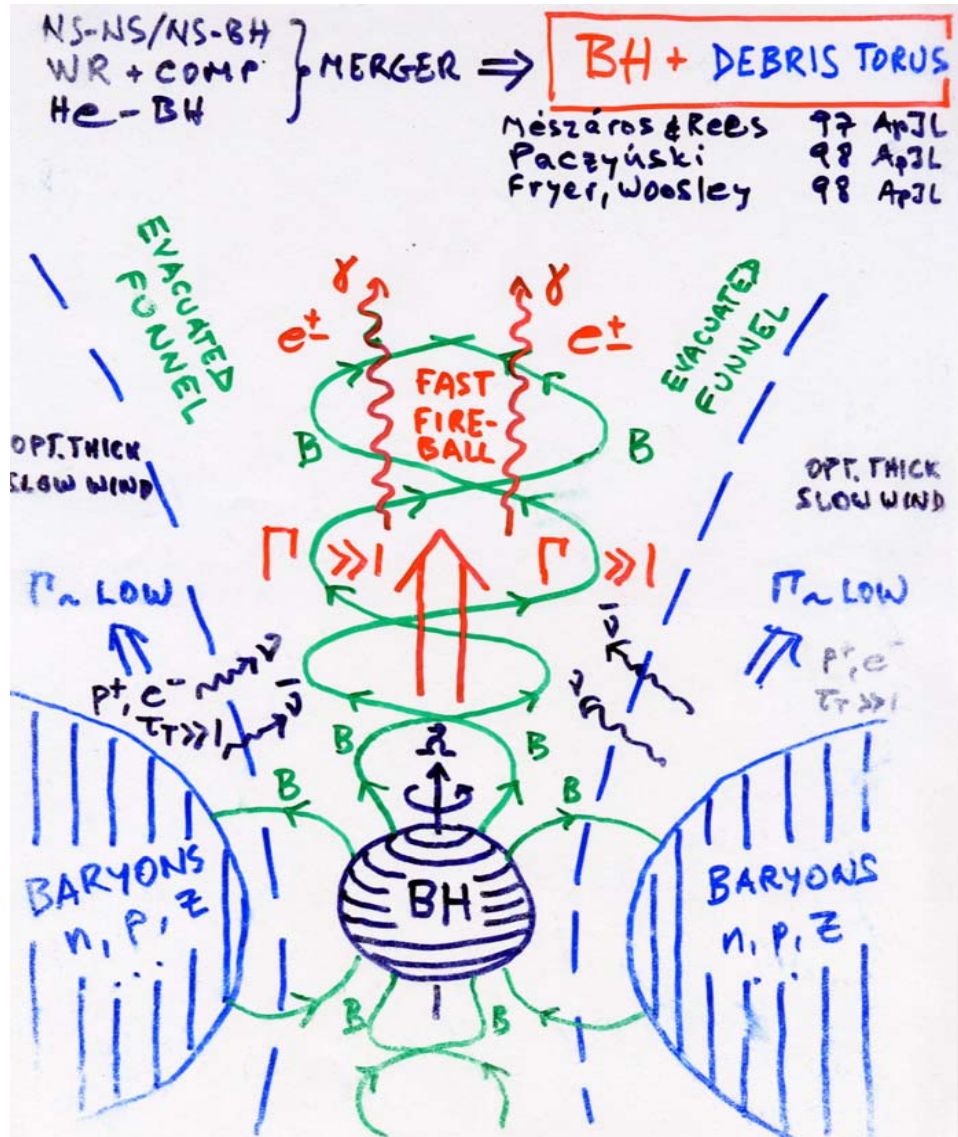 NS-NS/NS-BH
WR + COMP } MERGER ⇒ BH + DEBRIS TORUS
He-BH
Mészáros & Rees 97 ApJL
Paczyński 98 ApJL
Fryer, Woosley 98 ApJL
EVACUATED
FUNNEL
EVACUATED
FUNNEL
γ
γ
e±
e±
FAST
FIRE-
BALL
B
B
OPT. THICK
SLOW WIND
OPT. THICK
SLOW WIND
Γ ≫1
Γ ≫1
Γ~ LOW
Γ~ LOW
p⁺, e⁻
τ_T≫1
ν
ν̄
ν̄
ν
p⁺, e⁻
τ_T≫1
B
Ω
B
B
B
BARYONS
n, p, Z
...
BH
BARYONS
n, p, Z
...
B
B